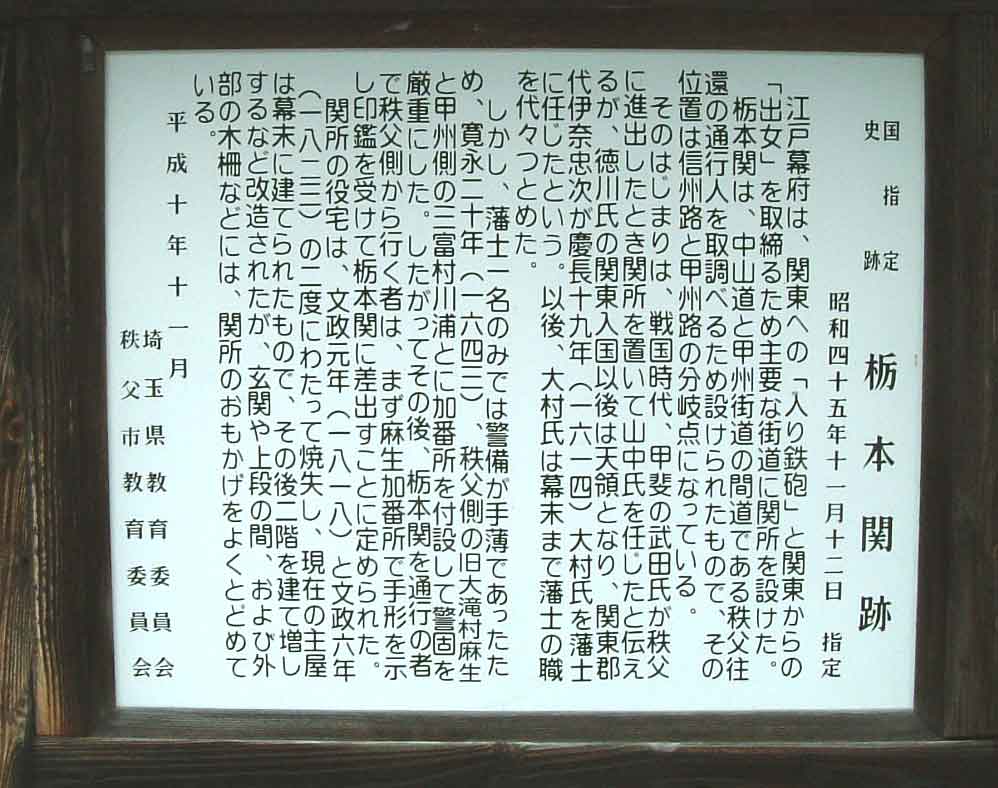 国指定
史跡
栃本関跡
昭和四十五年十一月十二日 指定
江戸幕府は、関東への「入り鉄砲」と関東からの
「出女」を取締るため主要な街道に関所を設けた。
栃本関は、中山道と甲州街道の間道である秩父往
還の通行人を取調べるため設けられたもので、その
位置は信州路と甲州路の分岐点になっている。
そのはじまりは、戦国時代、甲斐の武田氏が秩父
に進出したとき関所を置いて山中氏を任じたと伝え
るが、徳川氏の関東入国以後は天領となり、関東郡
代伊奈忠次が慶長十九年(一六一四)大村氏を藩士
に任じたという。以後、大村氏は幕末まで藩士の職
を代々つとめた。
しかし、藩士一名のみでは警備が手薄であったた
め、寛永二十年(一六四三)、秩父側の旧大滝村麻生
と甲州側の三富村川浦とに加番所を付設して警固を
厳重にした。したがってその後、栃本関を通行の者
で秩父側から行く者は、まず麻生加番所で手形を示
し印鑑を受けて栃本関に差出すことに定められた。
関所の役宅は、文政元年(一八一八)と文政六年
(一八二三)の二度にわたって焼失し、現在の主屋
は幕末に建てられたもので、その後二階を建て増し
するなど改造されたが、玄関や上段の間、および外
部の木柵などには、関所のおもかげをよくとどめて
いる。
平成十年十一月
埼玉県教育委員会
秩父市教育委員会